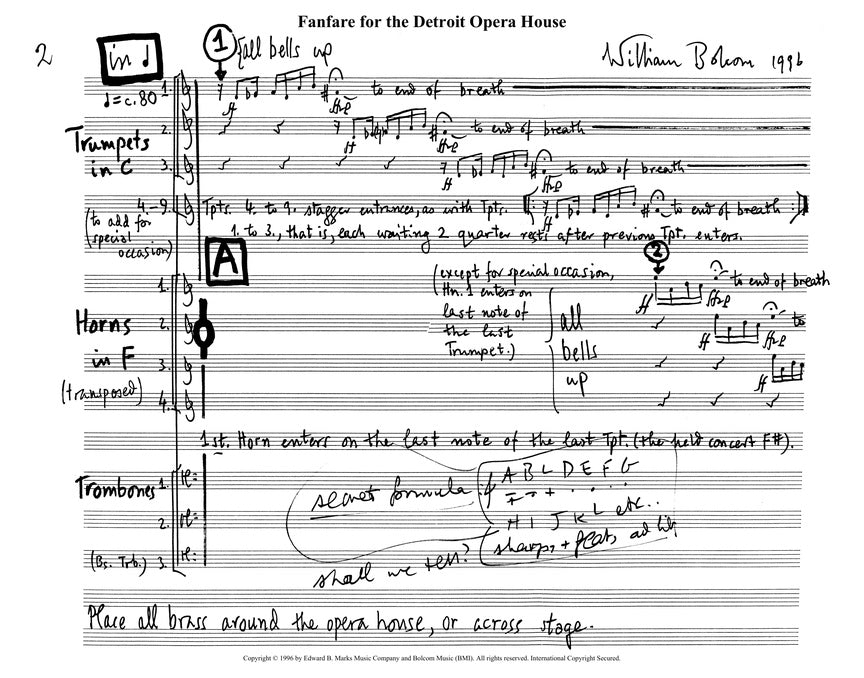 Fanfare for the Detroit Opera House
2
in ♩
1
all bells up
William Bolcom 1996
♩=c.80
1.
ff
to end of breath
Trumpets
in C
2.
ff
to end of breath
3.
ff
to end of breath
4-9.
(to add for
special
occasion)
Tpts. 4. to 9. stagger entrances, as with Tpts.
1. to 3., that is, each waiting 2 quarter rests after previous Tpt. enters.
ff
to end of breath
A
2
Horns
in F
(transposed)
1.
2.
3.
4.
(except for special occasion,
Hn. 1 enters on
last note of
the last
Trumpet.)
all
bells
up
ff
to end of breath
ff
to
ff
1st. Horn enters on the last note of the last Tpt. (the held concert F#).
Trombones
1.
2.
(Bs. Trb.) 3.
secret formula
A B C D E F G
H I J K L etc..
sharps + flats ad lib
shall we tell?
Place all brass around the opera house, or across stage.
Copyright © 1996 by Edward B. Marks Music Company and Bolcom Music (BMI). All rights reserved. International Copyright Secured.